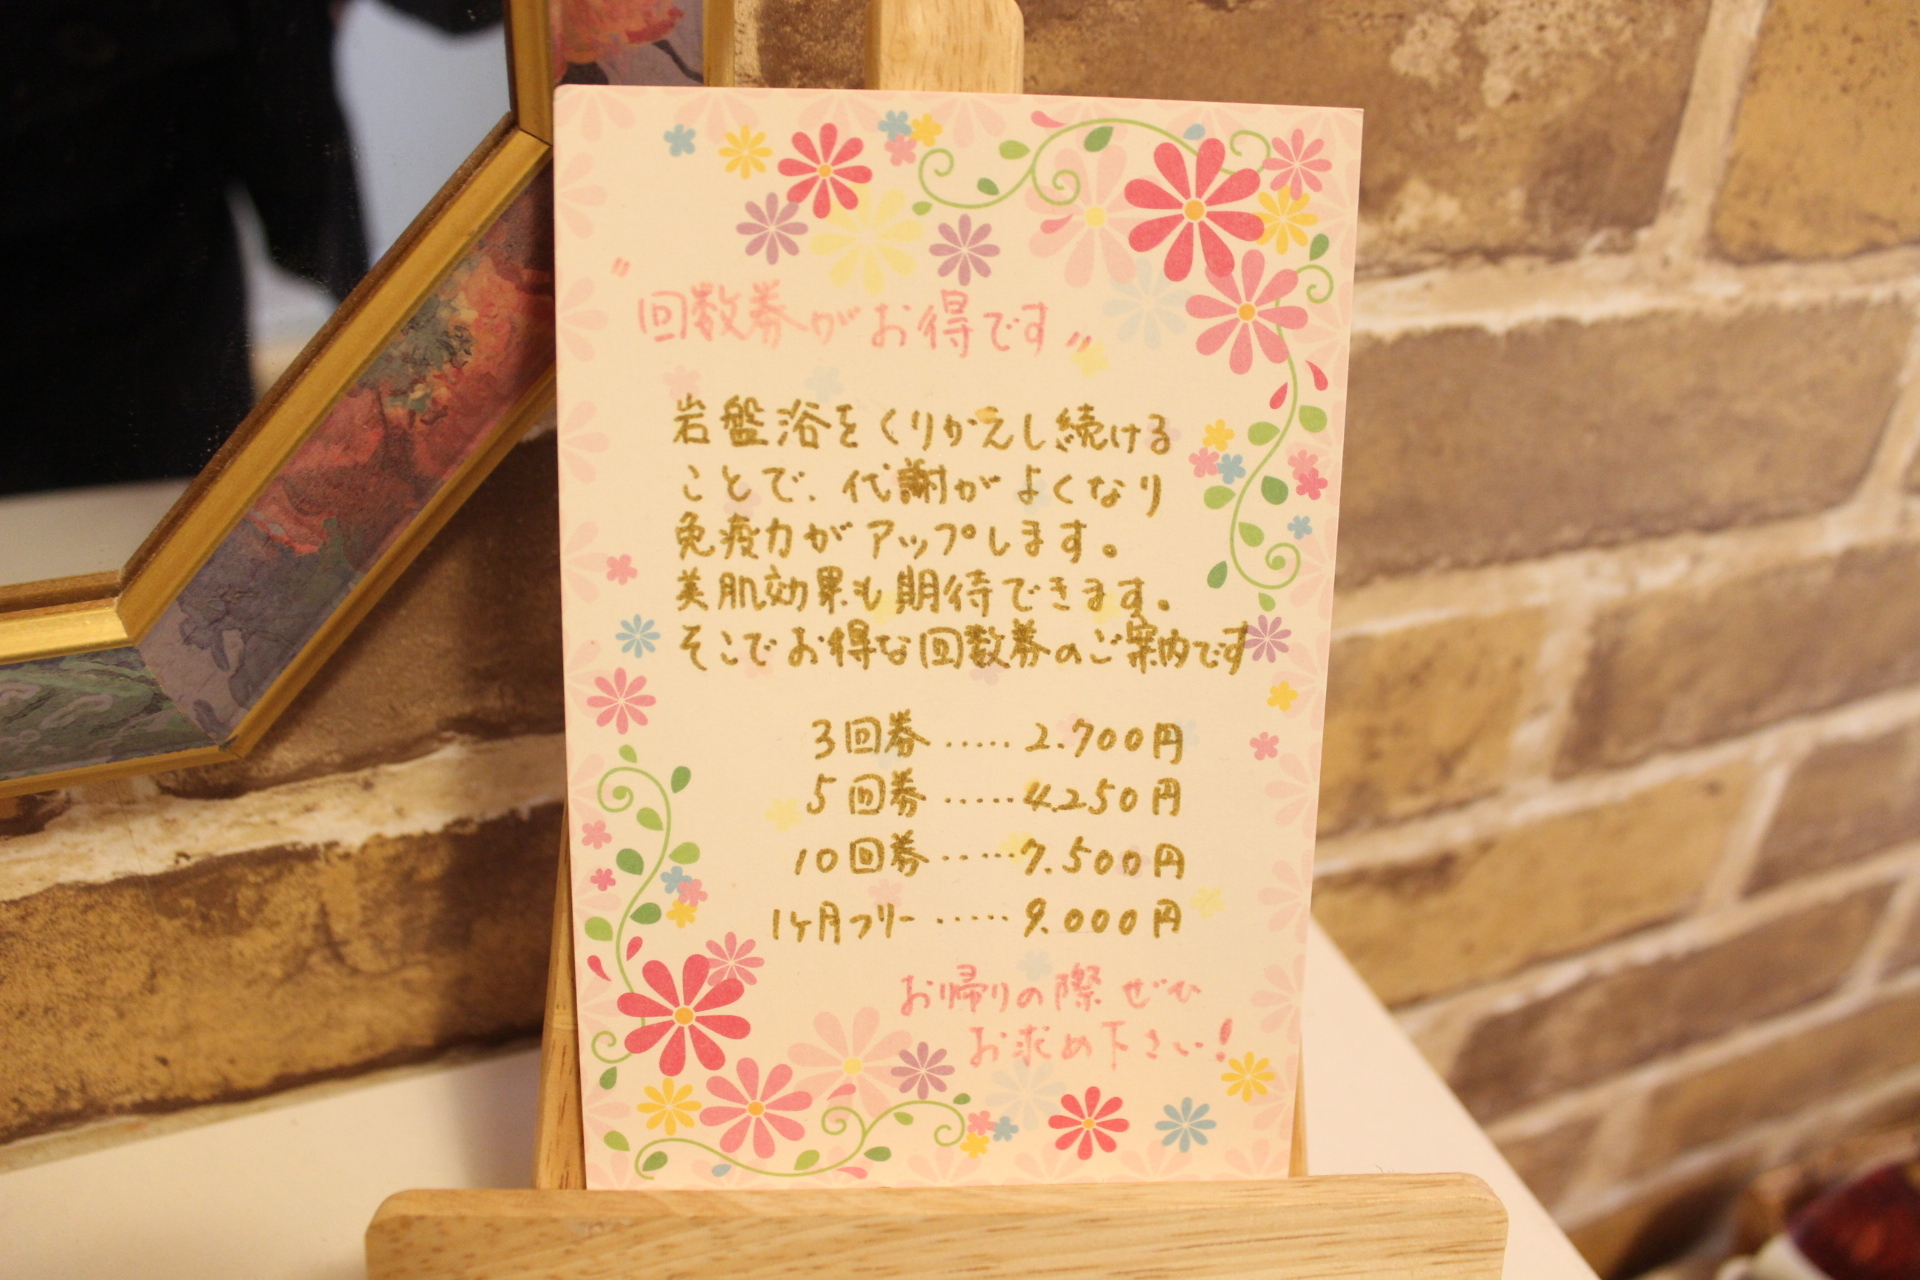 "回数券がお得です"
岩盤浴をくりかえし続ける
ことで、代謝がよくなり
免疫力がアップします。
美肌効果も期待できます。
そこでお得な回数券のご案内です
3回券……2.700円
5回券……4.250円
10回券……7.500円
1ヶ月フリー……9.000円
お帰りの際ぜひ
お求め下さい!